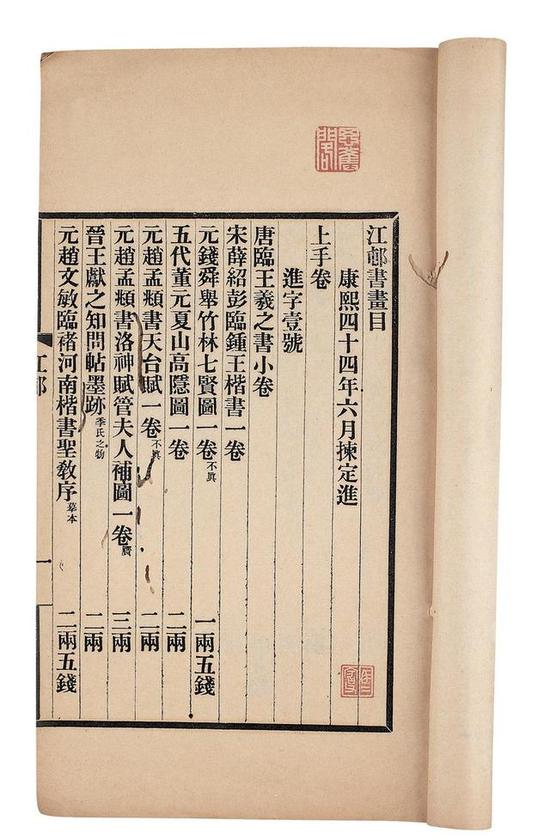 江邨書畫目
康熙四十四年六月揀定進
上手卷
進字壹號
唐臨王羲之書小卷
宋薛紹彭臨鍾王楷書一卷
元錢舜舉竹林七賢圖一卷不眞 一兩五錢
五代董元夏山高隱圖一卷 二兩
元趙孟頫書天台賦一卷不眞 二兩
元趙孟頫書洛神賦管夫人補圖一卷贗 三兩
晉王獻之知問帖墨跡季氏之物 二兩
元趙文敏臨褚河南楷書聖敎序摹本 二兩五錢
江邨
一